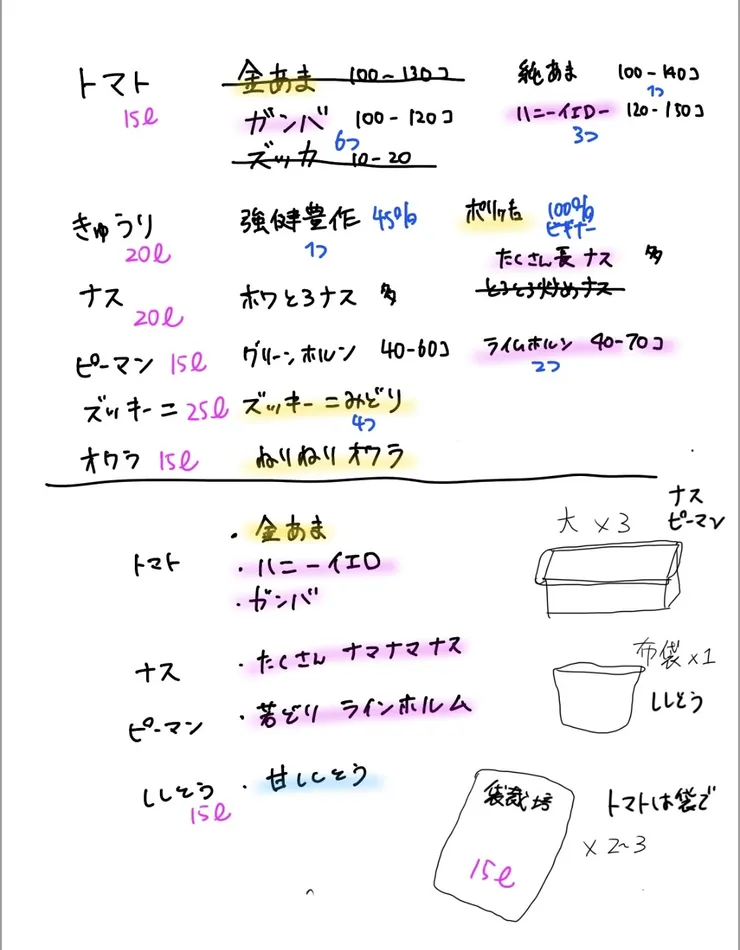 トマト 金あま 100〜130コ 純あま 100-140コ
15ℓ 1つ
ガンバ 100-120コ ハニーイエロー 120-150コ
6つ 3つ
ズッカ 10-20
きゅうり 強健豊作 45% 100%
20ℓ 1つ ビギナー
たくさん長ナス 多
ナス ホワとろナス 多 とろとろ炒めナス
20ℓ
ピーマン 15ℓ グリーンホルン 40-60コ ライムホルン 40-70コ
2つ
ズッキーニ 25ℓ ズッキーニみどり
4つ
オクラ 15ℓ ねりねりオクラ
ナス
ピーマン
大 ×3
・金あま
トマト ・ハニーイエロ
・ガンバ
ナス ・たくさん ナマナマナス
布袋×1
ししとう
ピーマン ・若どり ラインホルム
ししとう ・甘しとう
15ℓ
袋栽培 トマトは袋で
× 2~3
15ℓ